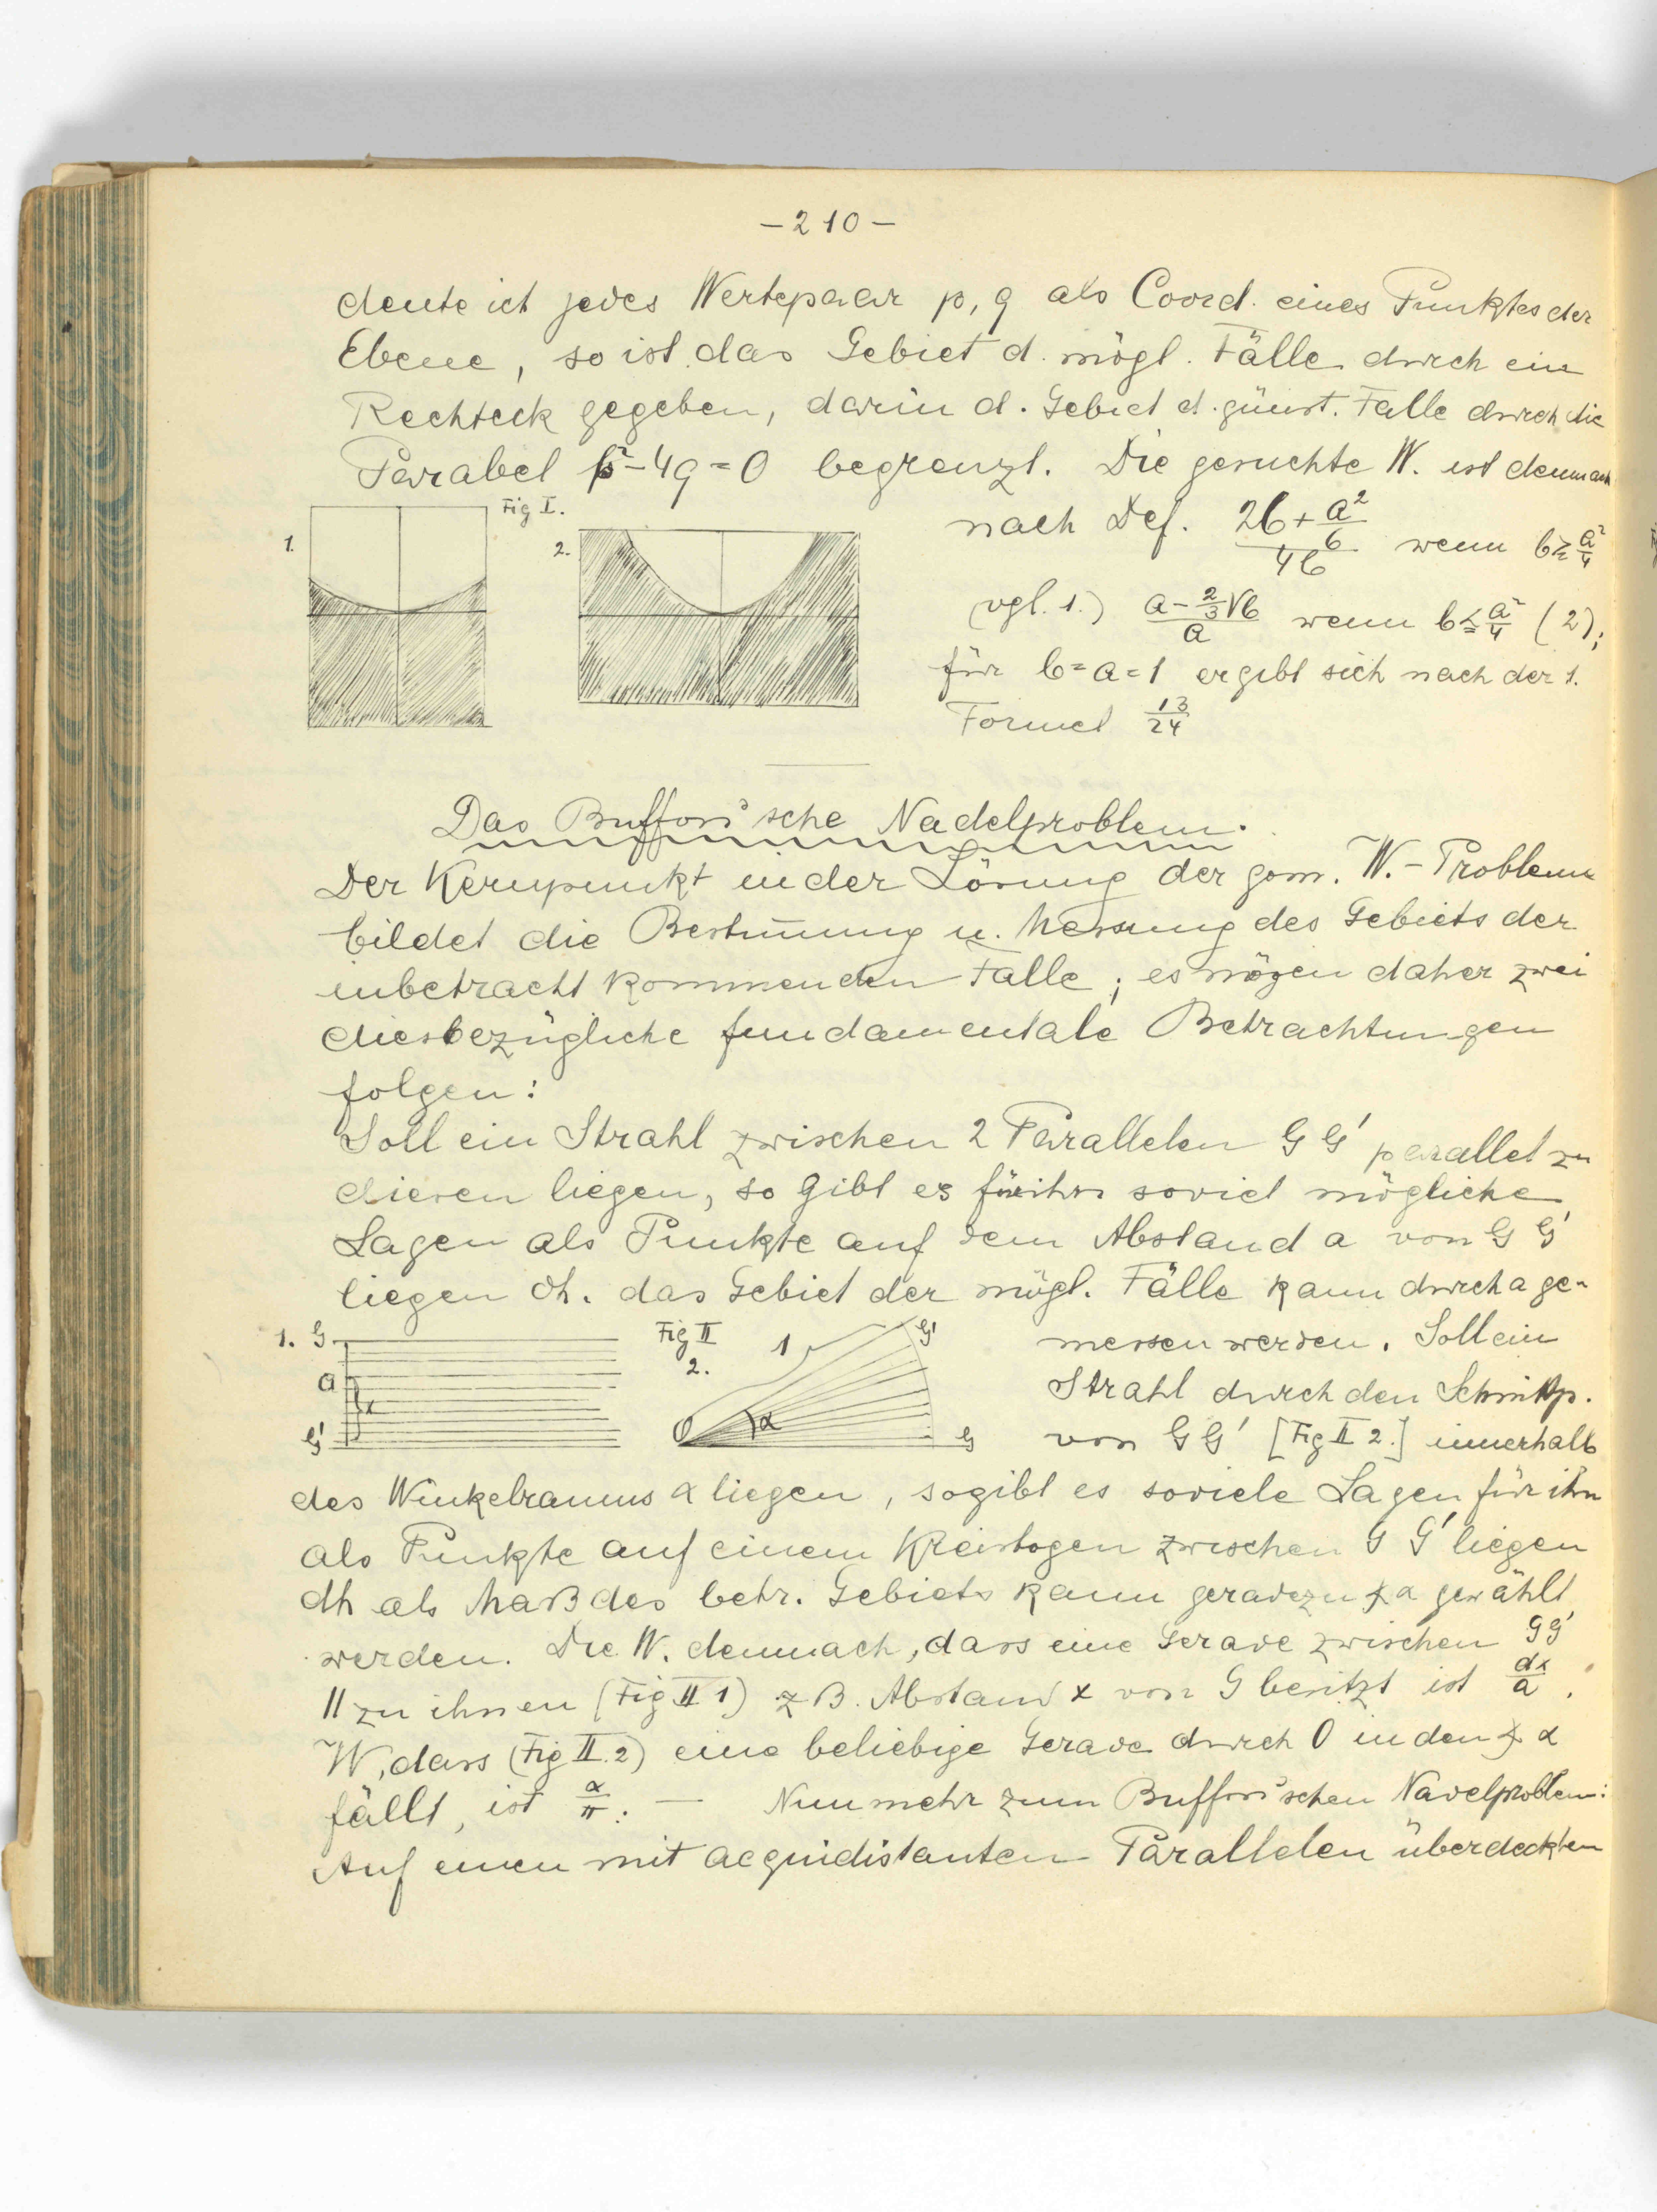 – 210 –
deute ich jedes Wertepaar p, q als Coord. eines Punktes der
Ebene, so ist das Gebiet d. mögl. Fälle durch ein
Rechteck gegeben, darin d. Gebiet d. günst. Fälle durch die
Parabel p²-4q=0 begrenzt. Die gesuchte W. ist demnach
Fig I.
1.
2.
nach Def. (2b + a²/6)/4b wenn b ≧ a²/4
(vgl. 1.) (a - 2/3 √b)/a wenn b ≦ a²/4 (2);
für b=a=1 ergibt sich nach der 1.
Formel 13/24
Das Buffon'sche Nadelproblem.
Der Kernpunkt in der Lösung der gom. W.-Probleme
bildet die Bestim̄ung u. Messung des Gebiets der
inbetracht kommenden Fälle; es mögen daher zwei
diesbezügliche fundamentale Betrachtungen
folgen:
Soll ein Strahl zwischen 2 Parallelen G G' parallel zu
diesen liegen, so gibt es für ihn soviel mögliche
Lagen als Punkte auf dem Abstand a von G G'
liegen dh. das Gebiet der mögl. Fälle kann durch a ge-
1. G
a
x
G'
Fig II
2.
1
G'
O
α
G
messen werden. Soll ein
Strahl durch den Schnittp.
von G G' [Fig II 2.] innerhalb
des Winkelraums α liegen, so gibt es soviele Lagen für ihn
als Punkte auf einem Kreisbogen zwischen G G' liegen
dh als Maß des betr. Gebiets kann geradezu ∢ α gewählt
werden. Die W. demnach, dass eine Gerade zwischen G G'
|| zu ihnen (Fig II 1) z B. Abstand x von G besitzt ist dx/a.
W, dass (Fig II.2) eine beliebige Gerade durch O in den ∢ α
fällt, ist α/π. — Nunmehr zum Buffon'schen Nadelproblem:
Auf einen mit aequidistanten Parallelen überdeckten